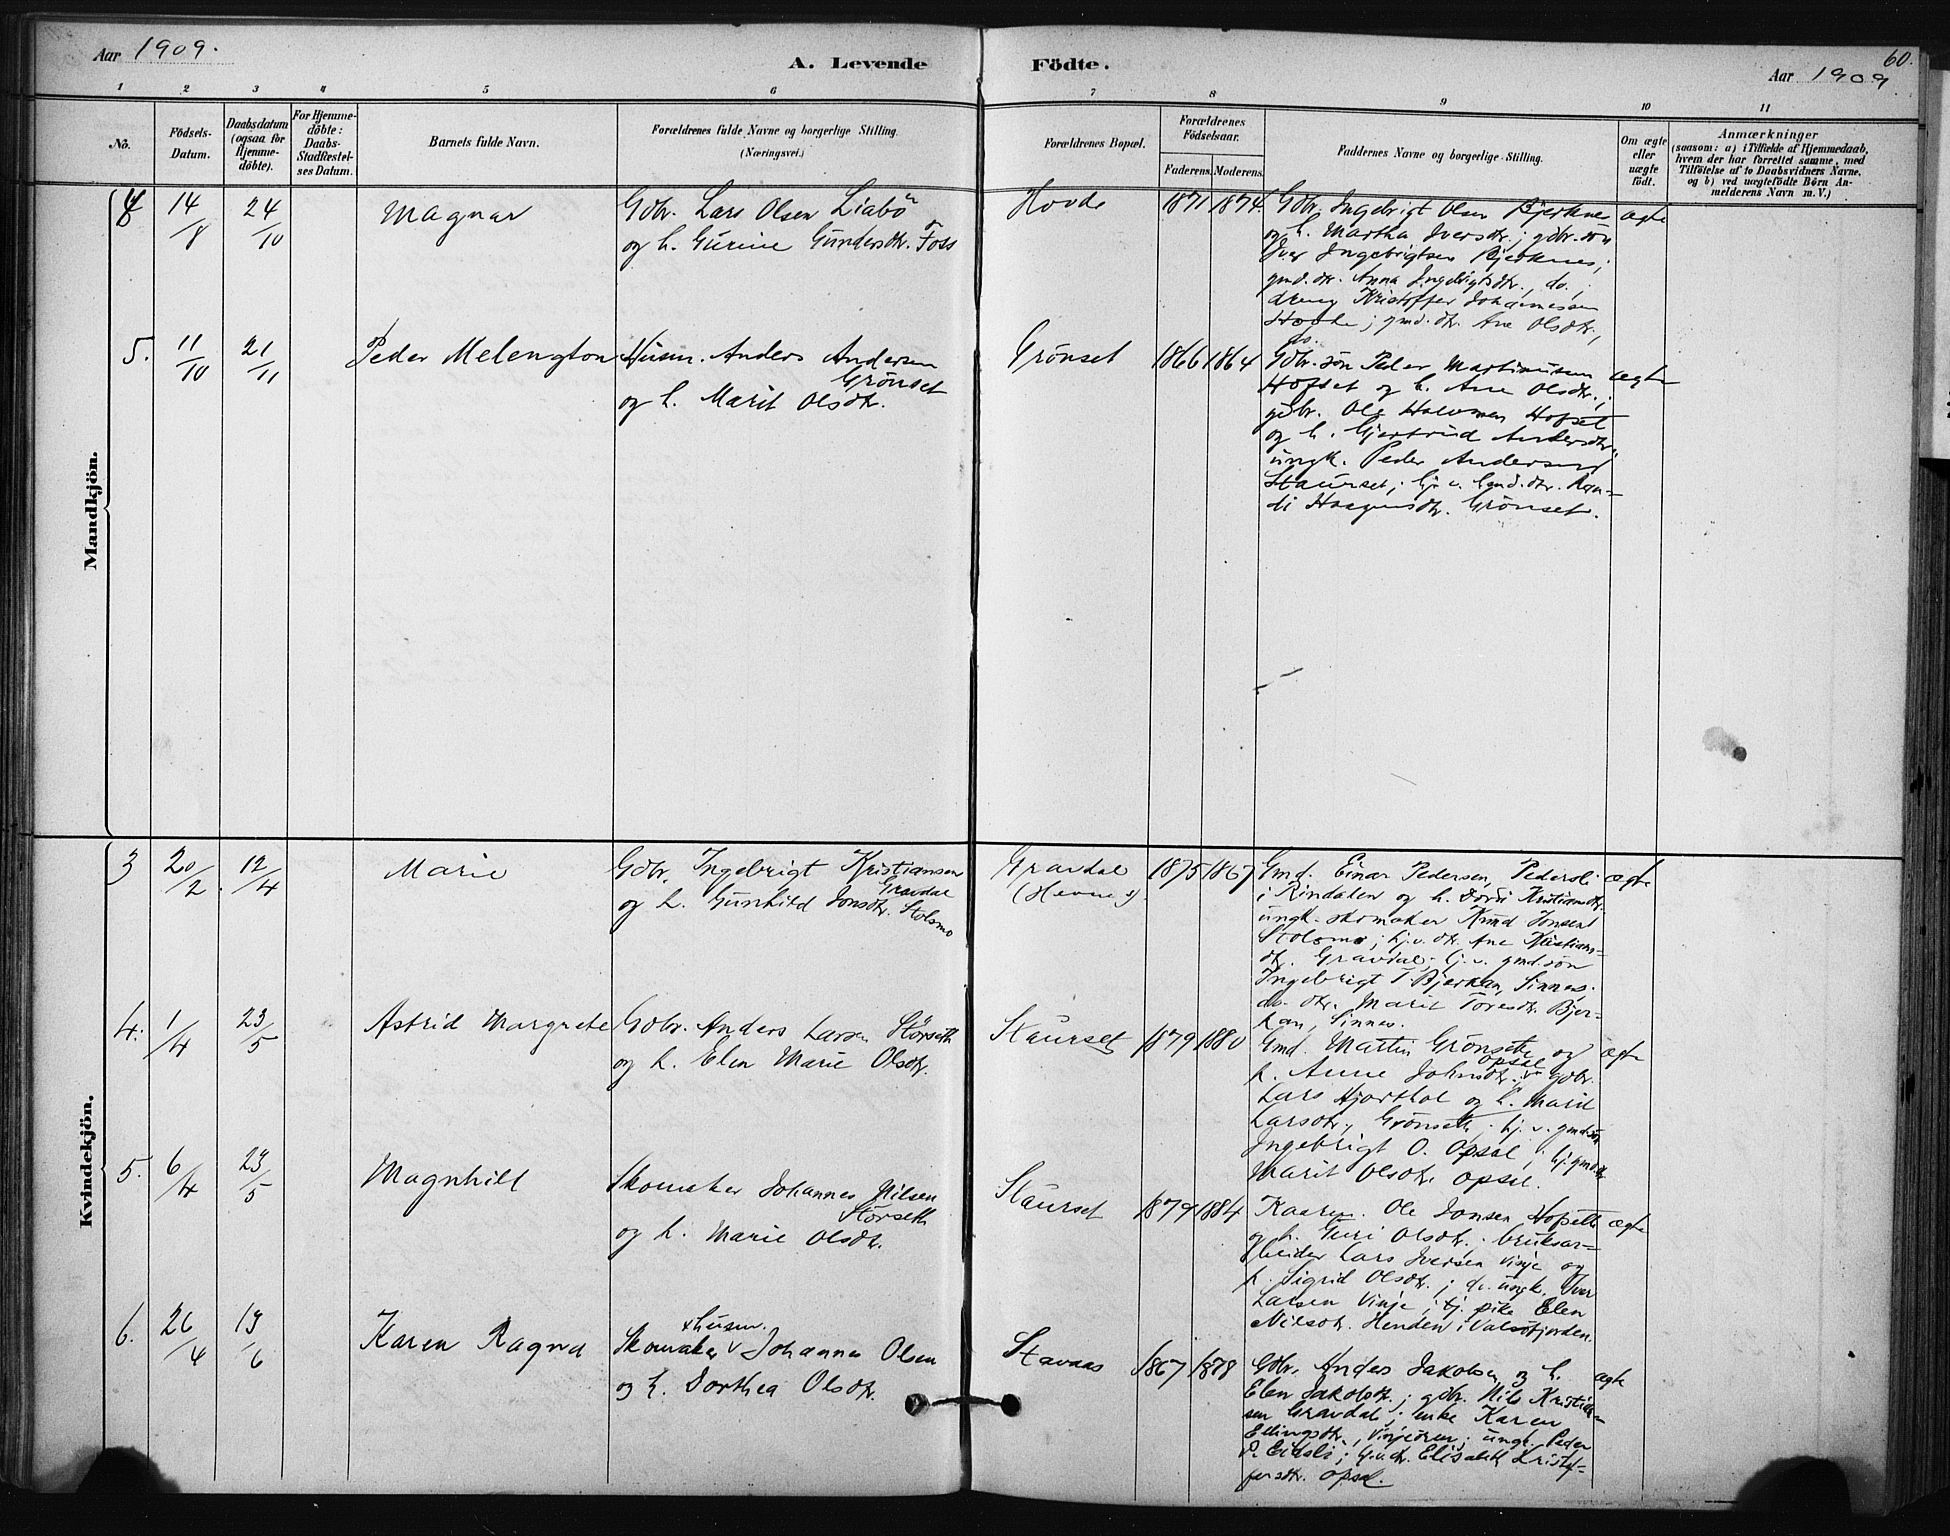 Aar 1909.
A. Levende Födte.
60.
Aar 1909
1 2 3 4 5 6 7 8 9 10 11
No.
Födsels-
Datum.
Daabsdatum
(ogsaa for
Hjemme-
döbte).
For Hjemme-
döbte:
Daabs-
Stadfæstel-
ses Datum.
Barnets fulde Navn.
Forældrenes fulde Navne og borgerlige Stilling.
(Næringsvei.)
Forældrenes Bopæl.
Forældrenes
Födselsaar.
Faderens. Moderens.
Faddernes Navne og borgerlige Stilling.
Om ægte
eller
uægte
födt.
Anmærkninger
(saasom: a) i Tilfælde af Hjemmedaab,
hvem der har forrettet samme, med
Tilföielse af to Daabsvidners Navne,
og b) ved uægtefödte Börn An-
melderens Navn m. V.)
Mandkjön.
4 14/8 24/10 Magnar
Gdbr. Lars Olsen Liabö
og h. Gurine Gundersdtr. Foss
Hovde 1871 1874 ægte
Gdbr. Ingebrigt Olsen Bjerknes
og h. Martha Iversdtr.; gdbr. sön
Iver Ingebrigtsen Bjerknes;
gmd. dtr. Anna Ingebrigtsdtr., do.;
dreng Kristoffer Johannessen
Hovde; gmd. dtr. Ane Olsdtr.,
do.
5. 11/10 21/11 Peder Melengton
Husm. Anders Andersen
Grönset
og h. Marit Olsdtr.
Grönset 1866 1864 ægte
Gdbr. sön Peder Martinusen
Hofset og h. Ane Olsdtr.;
gdbr. Ole Halvorsen Hofset
og h. Gjertrud Andersdtr.;
ungk. Peder Andersen
Staurset; hj. v. Gmd. dtr. Ran-
di Haagensdtr. Grönset.
Kvindekjön.
3 20/2 12/4 Marie
Gdbr. Ingebrigt Kristiansen
Gravdal
og h. Gunhild Jonsdtr. Stolsmo
Gravdal
(Hevne)
1875 1867 ægte
Gmd. Einar Pedersen, Pedersli
i Rindalen og h. Dordi Kristiansdtr.
ungk. skomaker Knud Jonsen
Stolsmo; hj. v. dtr. Ane Kristians-
dtr. Gravdal; hj. v. gmd. sön
Ingebrigt T. Bjerkan, Sinnes.
do. dtr. Marit Toresdtr. Bjer-
kan, Sinnes.
4. 1/4 23/5 Astrid Margrete
Gdbr. Anders Larsen Störseth
og h. Elen Marie Olsdtr.
Staurset 1879 1880 ægte
Gmd. Martin Grönseth og
h. Anne Johnsdtr. Opsal; gdbr.
Lars Hjorthol og h. Marit
Larsdtr. Grönseth; hj. v. gmd. sön
Ingebrigt O. Opsal; hj. gmd. dtr.
Marit Olsdtr. Opsal.
5. 6/4 23/5 Magnhild
Skomaker Johannes Nilsen
Störseth
og h. Marie Olsdtr.
Staurset 1879 1884 ægte
Kaarm. Ole Jonsen Hofseth
og h. Guri Olsdtr.; bruksar-
beider Lars Iversen Vinje og
h. Sigrid Olsdtr.; do. ungk. Iver
Larsen Vinje; tj. pike Elen
Nilsdtr. Henden i Valsöfjorden.
6. 26/4 13/6 Karen Ragna
+ husm.
Skomaker Johannes Olsen
og h. Dorthea Olsdtr.
Stavaas 1867 1878 ægte
Gdbr. Anders Jakobsen og h.
Elen Jakobsdtr.; gdbr. Nils Kristian-
sen Gravdal; enke Karen
Ellingsdtr., Vinjeören; ungk. Peder
P. Eidsli; hj. v. dtr. Elisabeth Kristof-
fersdtr. Opsal.